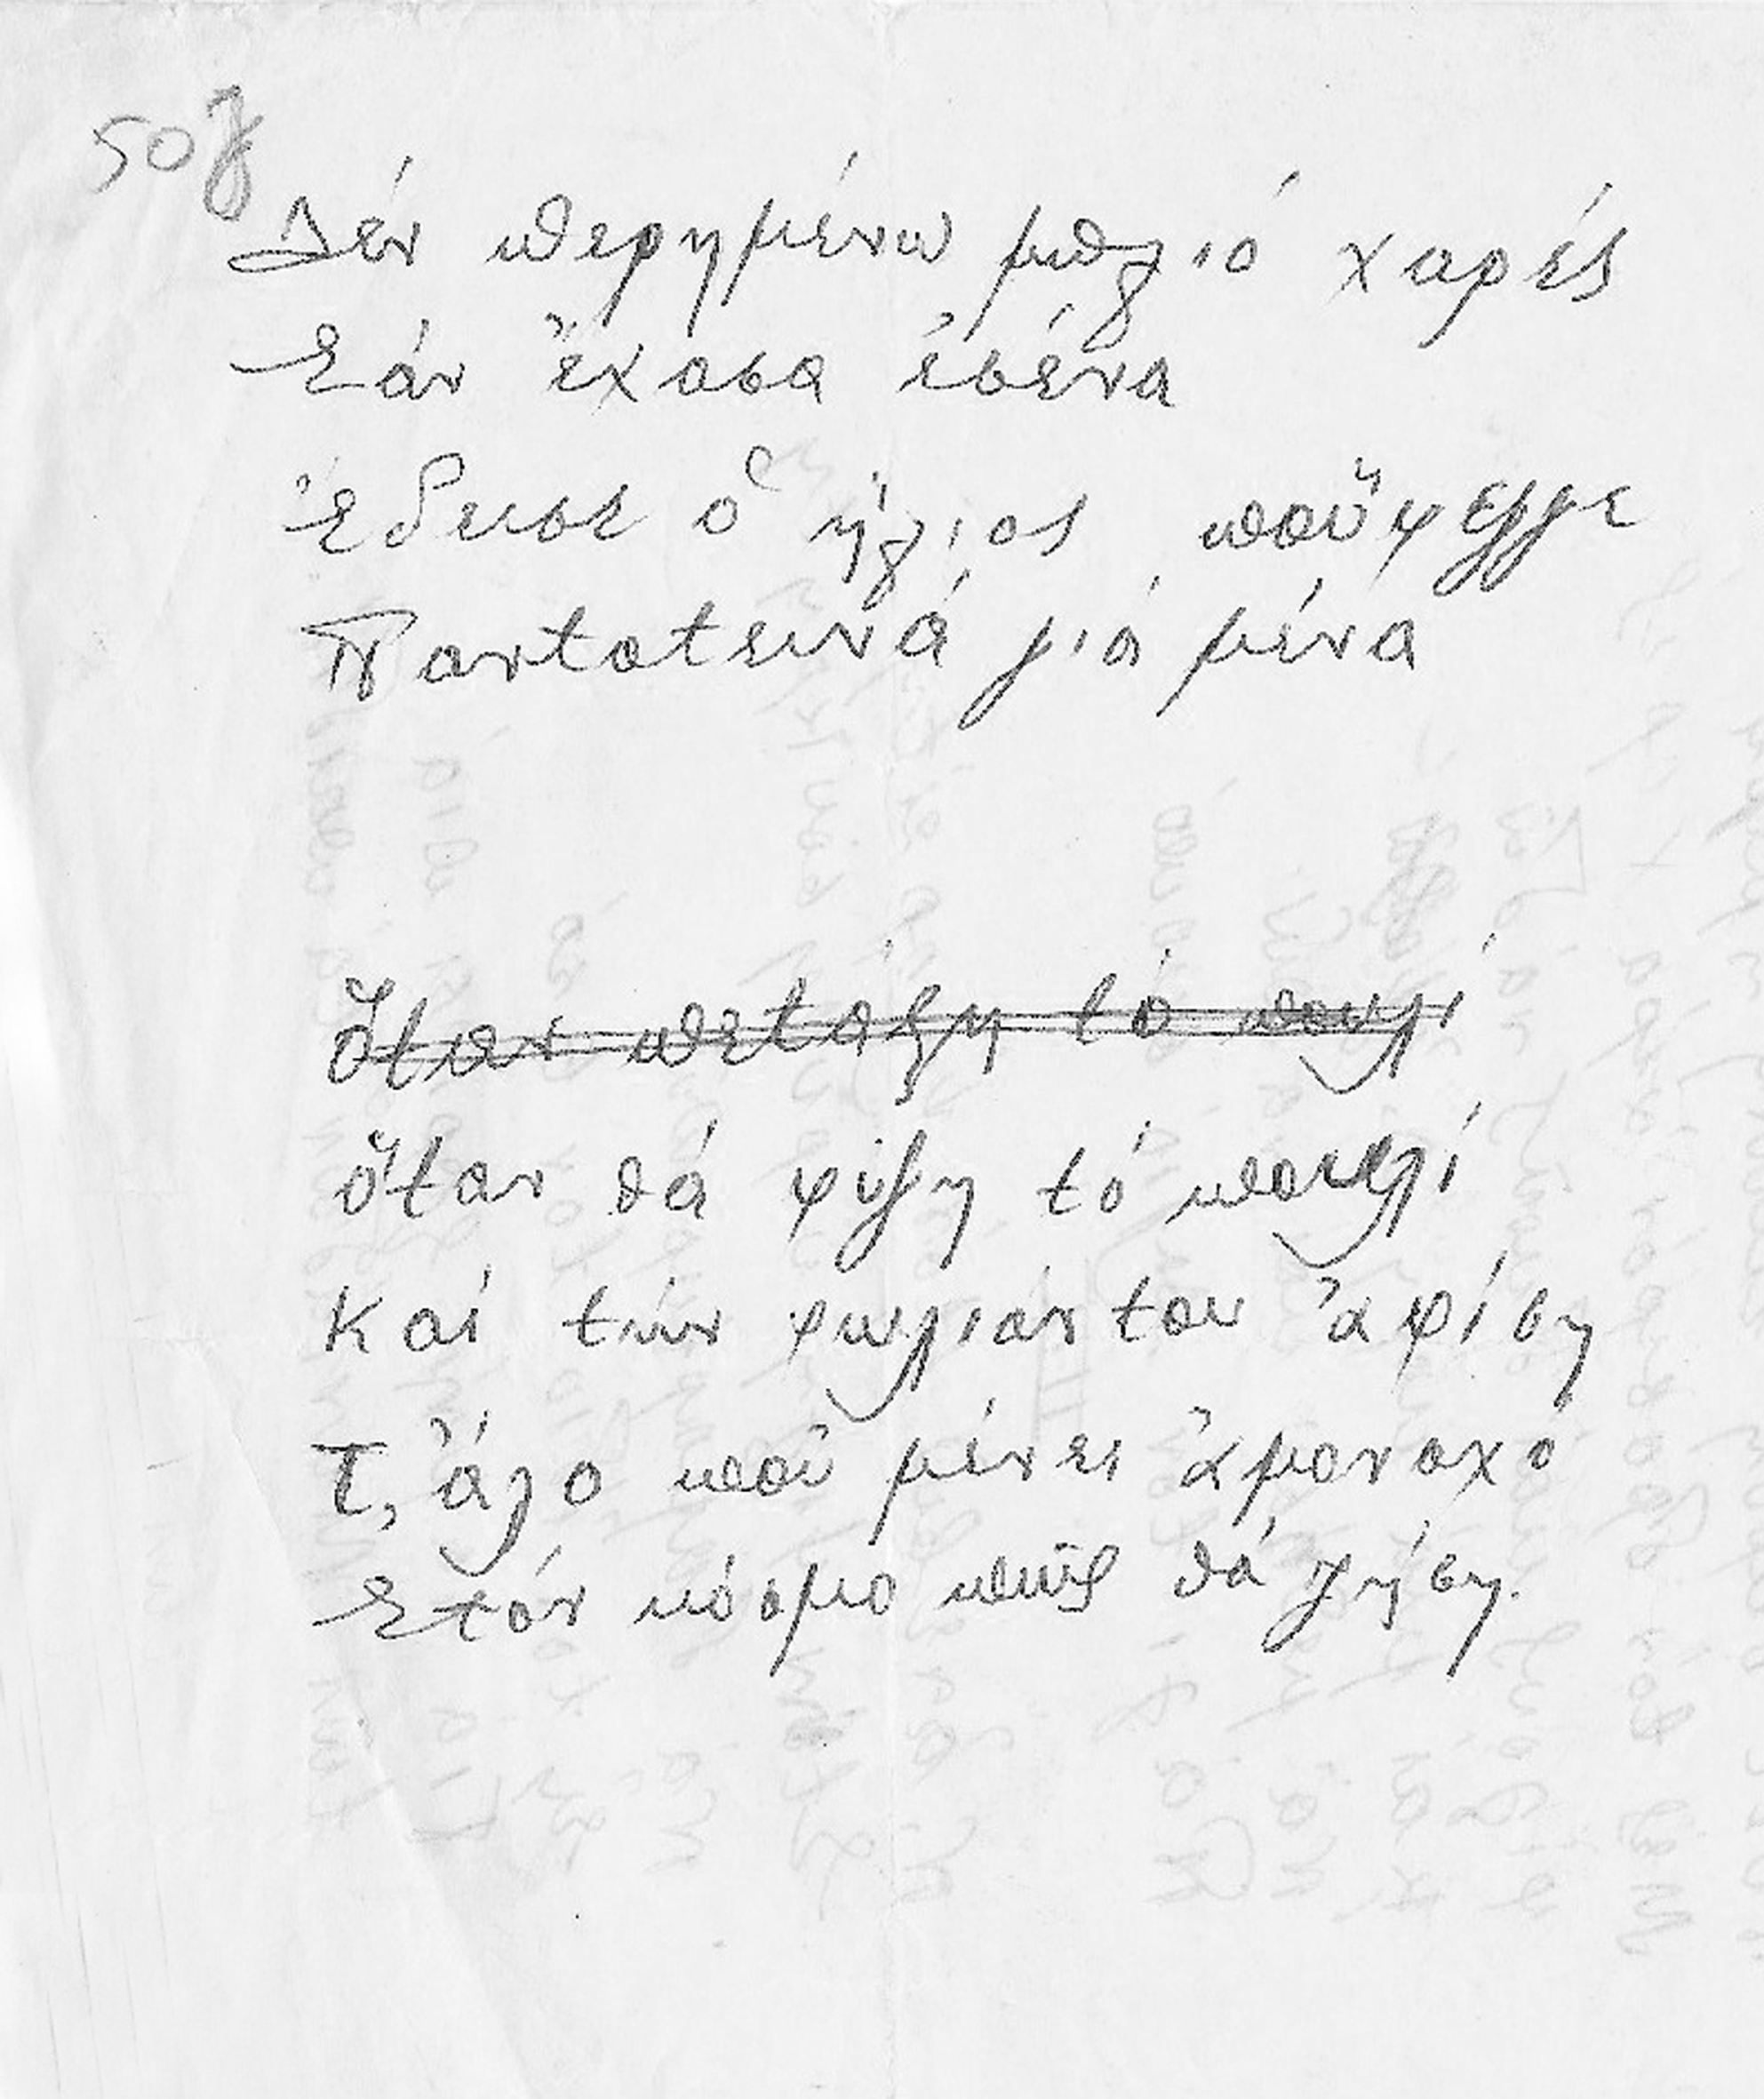 50
Δέν περημένω μπλιό χαρές
Εάν ἔχασα ἐσένα
Ἐδυσε ὁ ἥλιος ποὔφεγγε
Παντοτεινά γιά μένα
Ὅταν πετάξη τό πουλί
Ὅταν θά φύγη τό πουλί
Καί τήν φωλιάν του ἀφίση
Τ, ἄλο ποῦ μένει ἀμοναχό
Στόν κόσμο πῶς θά ζήση.